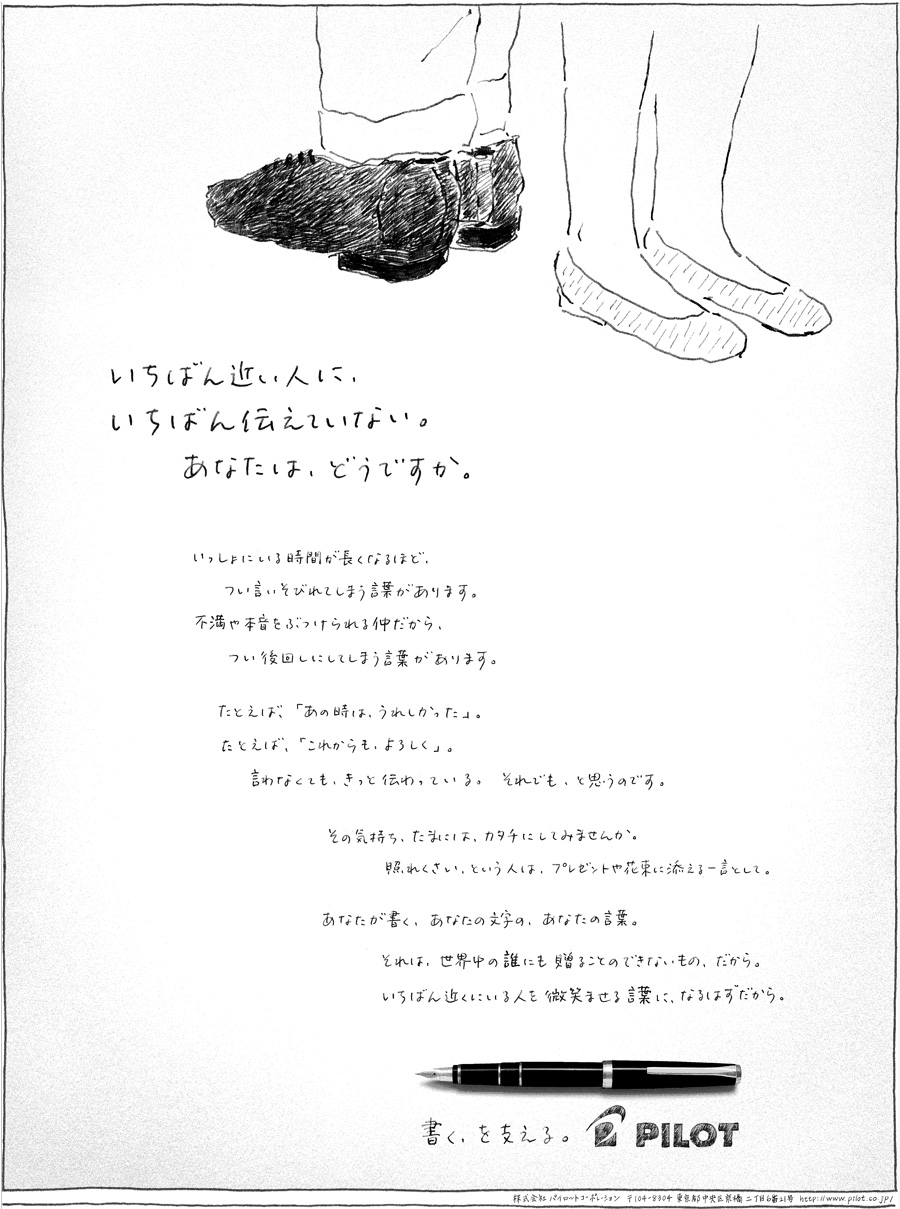 いちばん近い人に、
いちばん伝えていない。
あなたは、どうですか。
いっしょにいる時間が長くなるほど、
つい言いそびれてしまう言葉があります。
不満や本音をぶつけられる仲だから、
つい後回しにしてしまう言葉があります。
たとえば、「あの時は、うれしかった」。
たとえば、「これからも、よろしく」。
言わなくても、きっと伝わっている。 それでも、と思うのです。
その気持ち、たまには、カタチにしてみませんか。
照れくさい、という人は、プレゼントや花束に添える一言として。
あなたが書く、あなたの文字の、あなたの言葉。
それは、世界中の誰にも贈ることのできないもの、だから。
いちばん近くにいる人を微笑ませる言葉に、なるはずだから。
書く、を支える。 PILOT
株式会社パイロットコーポレーション 〒104-8304 東京都中央区京橋二丁目6番21号 http://www.pilot.co.jp/